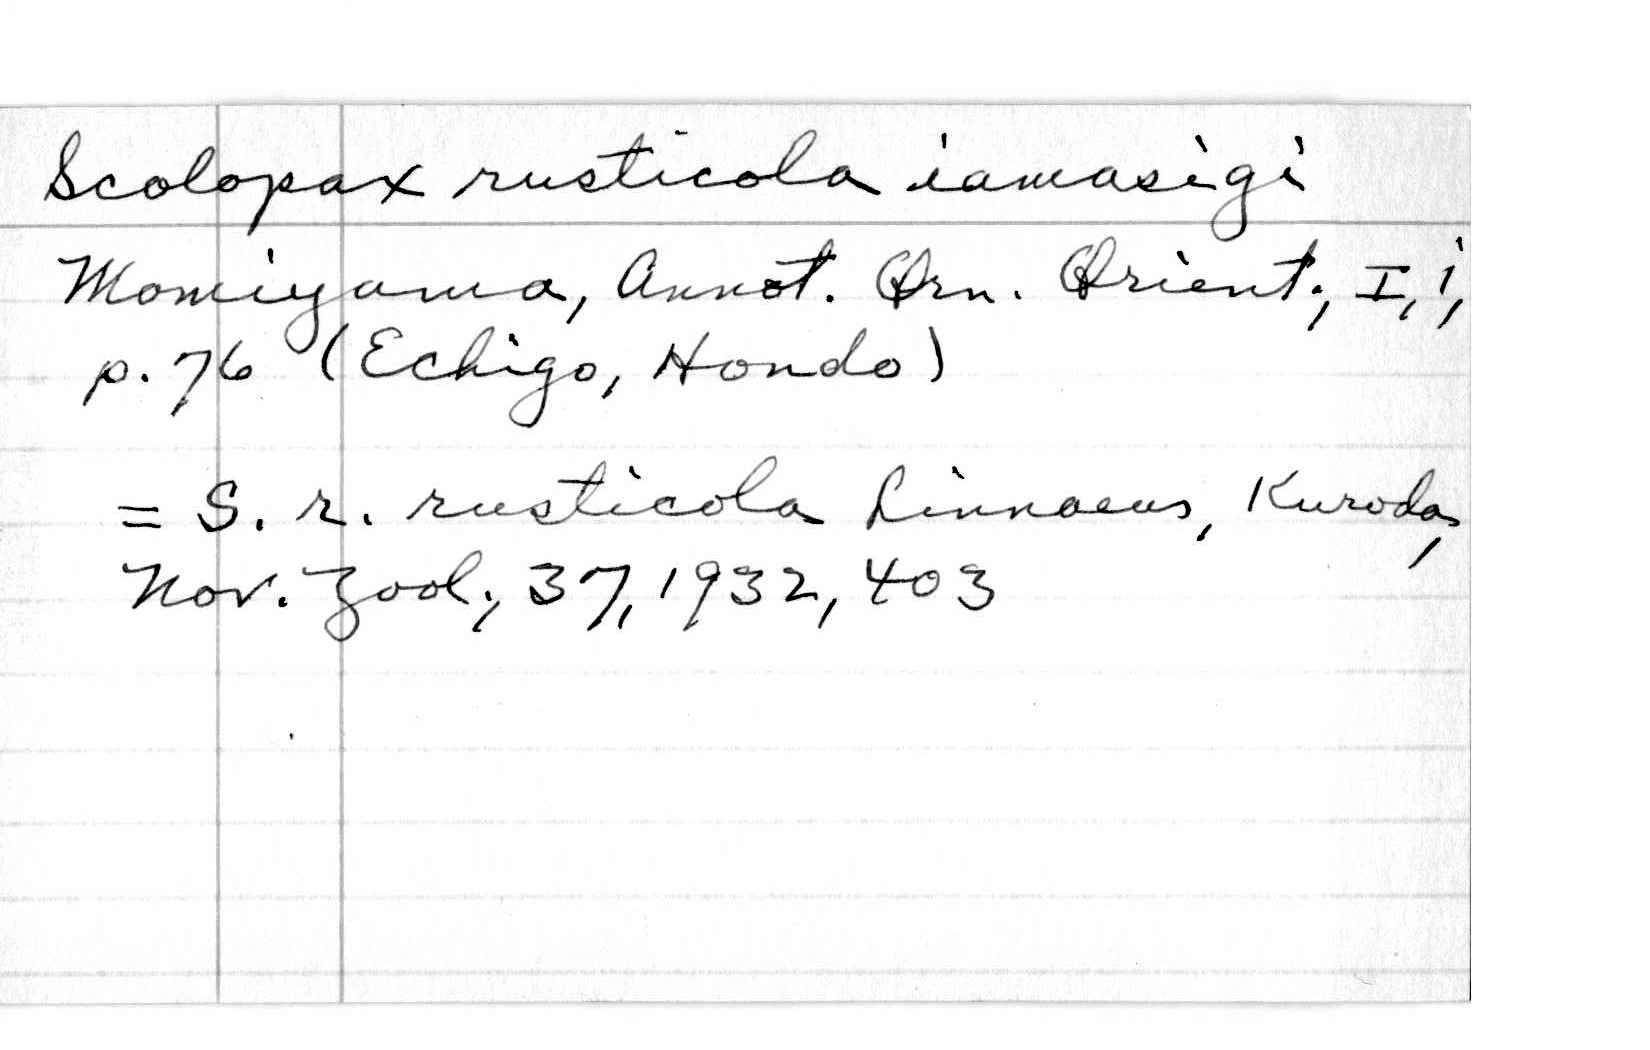 Scolopax rusticola iamasigi
Momiyama, Annot. Orn. Orient., I, i,
p. 76 (Echigo, Hondo)
= S. r. rusticola Linnaeus, Kuroda,
Nov. Zool., 37, 1932, 403